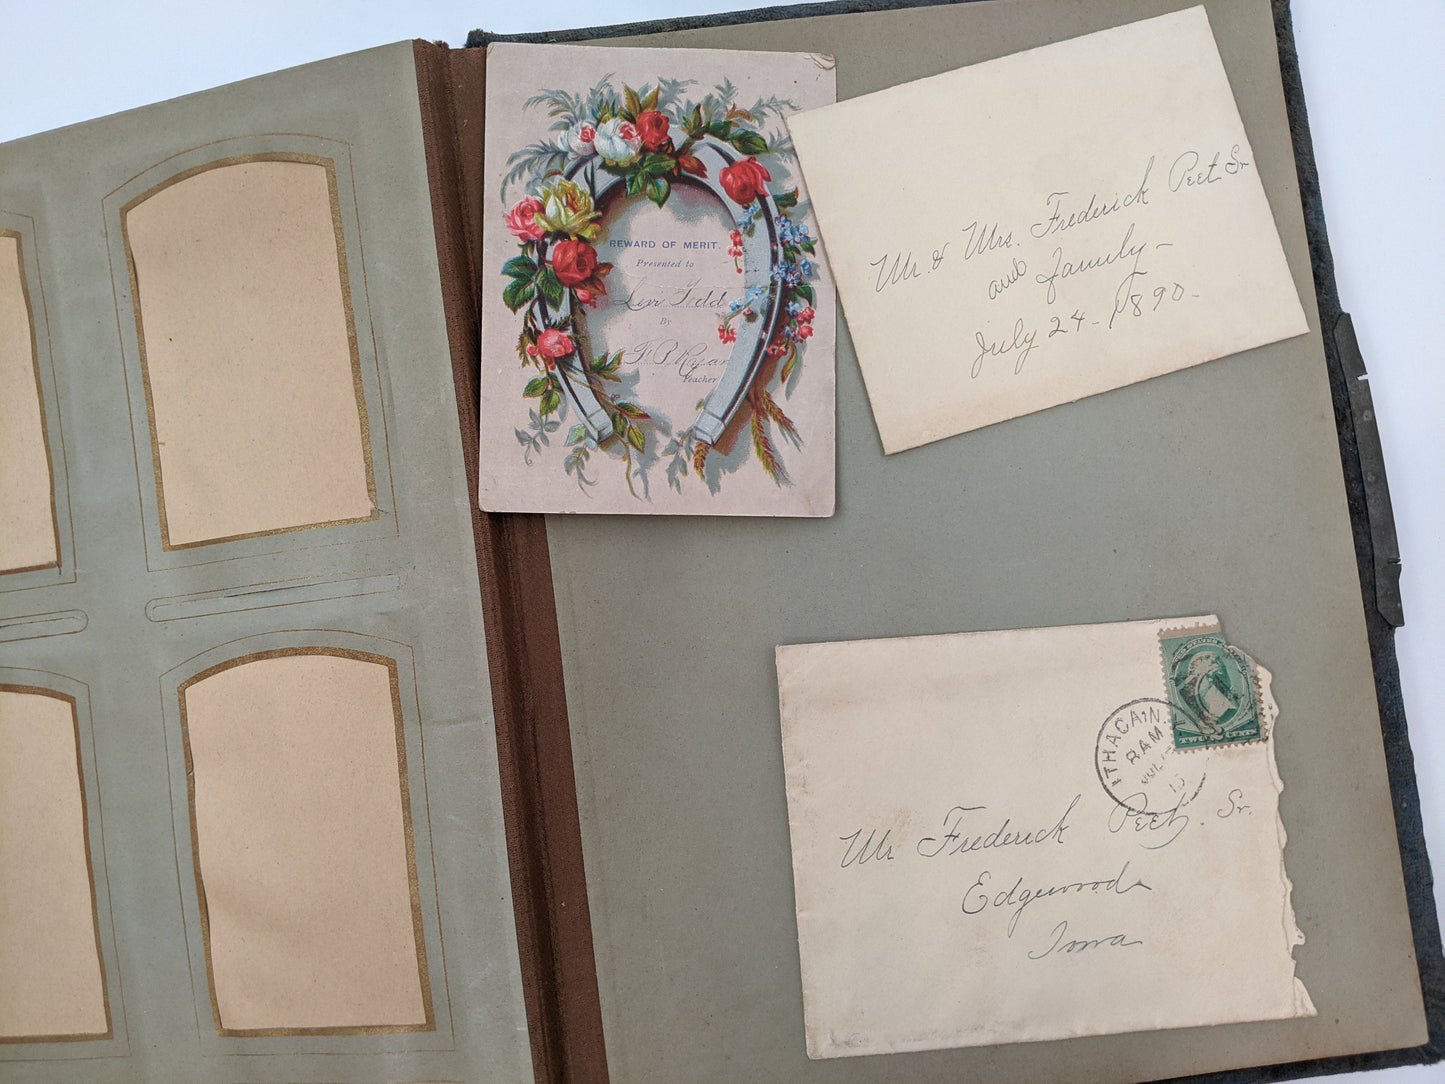 REWARD OF MERIT.
Presented to
Levi Tedd
By
Teacher
Mr. & Mrs. Frederick Peet Sr
and family—
July 24-1890-
ITHACA N.
8 AM
JUL
Mr Frederick Peet. Sr.
Edgewood
Iowa